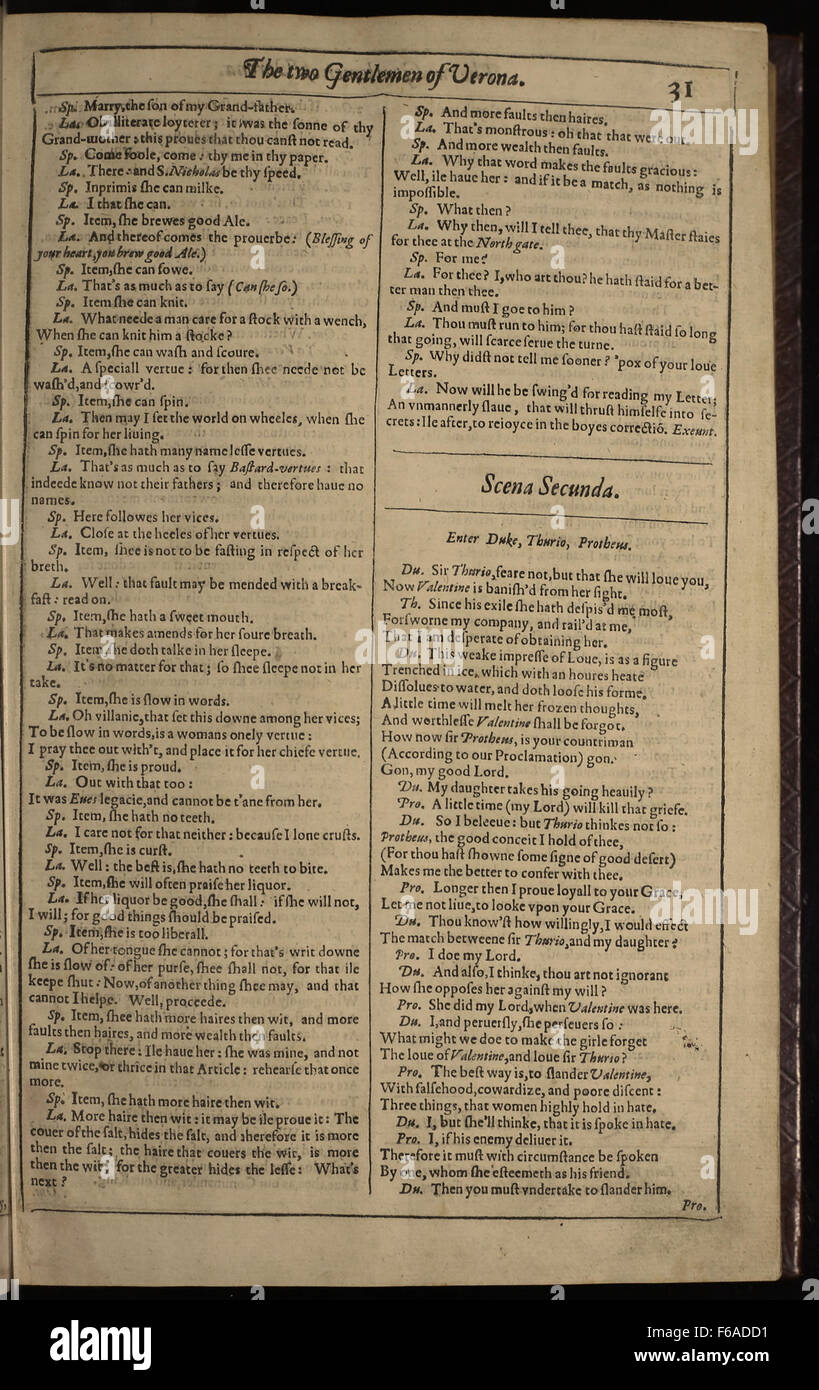 The two Gentlemen of Verona.
31
Sp. Marry, the ſon of my Grand-father.
La. Oh illiterate loyterer; it was the ſonne of thy
Grand-mother: this proues that thou canſt not read.
Sp. Come foole, come: thy me in thy paper.
La. There: and S. Nicholas be thy ſpeed.
Sp. Inprimis ſhe can milke.
La. I that ſhe can.
Sp. Item, ſhe brewes good Ale.
La. And thereof comes the prouerbe: (Bleſſing of
your heart, you brew good Ale.)
Sp. Item, ſhe can ſowe.
La. That's as much as to ſay (Can ſhe ſo.)
Sp. Item ſhe can knit.
La. What neede a man care for a ſtock with a wench,
When ſhe can knit him a ſtocke?
Sp. Item, ſhe can waſh and ſcoure.
La. A ſpeciall vertue: for then ſhee neede not be
waſh'd, and ſcowr'd.
Sp. Item, ſhe can ſpin.
La. Then may I ſet the world on wheeles, when ſhe
can ſpin for her liuing.
Sp. Item, ſhe hath many nameleſſe vertues.
La. That's as much as to ſay Baſtard-vertues: that
indeede know not their fathers; and therefore haue no
names.
Sp. Here followes her vices.
La. Cloſe at the heeles of her vertues.
Sp. Item, ſhee is not to be faſting in reſpect of her
breth.
La. Well: that fault may be mended with a break-
faſt: read on.
Sp. Item, ſhe hath a ſweet mouth.
La. That makes amends for her ſoure breath.
Sp. Item, ſhe doth talke in her ſleepe.
La. It's no matter for that; ſo ſhee ſleepe not in her
take.
Sp. Item, ſhe is ſlow in words.
La. Oh villanie, that ſet this downe among her vices;
To be ſlow in words, is a womans onely vertue:
I pray thee out with't, and place it for her chiefe vertue.
Sp. Item, ſhe is proud.
La. Out with that too:
It was Eues legacie, and cannot be t'ane from her.
Sp. Item, ſhe hath no teeth.
La. I care not for that neither: becauſe I loue cruſts.
Sp. Item, ſhe is curſt.
La. Well: the beſt is, ſhe hath no teeth to bite.
Sp. Item, ſhe will often praiſe her liquor.
La. If her liquor be good, ſhe ſhall: if ſhe will not,
I will; for good things ſhould be praiſed.
Sp. Item, ſhe is too liberall.
La. Of her tongue ſhe cannot; for that's writ downe
ſhe is ſlow of: of her purſe, ſhee ſhall not, for that ile
keepe ſhut: Now, of another thing ſhee may, and that
cannot I helpe. Well, proceede.
Sp. Item, ſhee hath more haires then wit, and more
faults then haires, and more wealth then faults.
La. Stop there: Ile haue her: ſhe was mine, and not
mine twice, or thrice in that Article: rehearſe that once
more.
Sp. Item, ſhe hath more haire then wit.
La. More haire then wit: it may be ile proue it: The
couer of the ſalt, hides the ſalt, and therefore it is more
then the ſalt; the haire that couers the wit, is more
then the wit; for the greater hides the leſſe: What's
next?
Sp. And more faults then haires.
La. That's monſtrous: oh that that were out.
Sp. And more wealth then faults.
La. Why that word makes the faults gracious:
Well, ile haue her: and if it be a match, as nothing is
impoſſible.
Sp. What then?
La. Why then, will I tell thee, that thy Maſter ſtaies
for thee at the North gate.
Sp. For me?
La. For thee? I, who art thou? he hath ſtaid for a bet-
ter man then thee.
Sp. And muſt I goe to him?
La. Thou muſt run to him; for thou haſt ſtaid ſo long
that going, will ſcarce ſerue the turne.
Sp. Why didſt not tell me ſooner? 'pox of your loue
Letters.
La. Now will he be ſwing'd for reading my Letter;
An vnmannerly ſlaue, that will thruſt himſelfe into ſe-
crets: Ile after, to reioyce in the boyes correctiō. Exeunt.
Scena Secunda.
Enter Duke, Thurio, Protheus.
Du. Sir Thurio, feare not, but that ſhe will loue you,
Now Valentine is baniſh'd from her ſight.
Th. Since his exile ſhe hath deſpis'd me moſt,
Forſworne my company, and rail'd at me,
That I am deſperate of obtaining her.
Du. This weake impreſſe of Loue, is as a figure
Trenched in ice, which with an houres heate
Diſſolues to water, and doth looſe his forme.
A little time will melt her frozen thoughts,
And worthleſſe Valentine ſhall be forgot.
How now ſir Protheus, is your countriman
(According to our Proclamation) gon.
Gon, my good Lord.
Du. My daughter takes his going heauily?
Pro. A little time (my Lord) will kill that griefe.
Du. So I beleeue: but Thurio thinkes not ſo:
Protheus, the good conceit I hold of thee,
(For thou haſt ſhowne ſome ſigne of good deſert)
Makes me the better to confer with thee.
Pro. Longer then I proue loyall to your Grace,
Let me not liue, to looke vpon your Grace.
Du. Thou know'ſt how willingly, I would effect
The match betweene ſir Thurio, and my daughter?
Pro. I doe my Lord.
Du. And alſo, I thinke, thou art not ignorant
How ſhe oppoſes her againſt my will?
Pro. She did my Lord, when Valentine was here.
Du. I, and peruerſly, ſhe perſeuers ſo:
What might we doe to make the girle forget
The loue of Valentine, and loue ſir Thurio?
Pro. The beſt way is, to ſlander Valentine,
With falſehood, cowardize, and poore diſcent:
Three things, that women highly hold in hate.
Du. I, but ſhe'll thinke, that it is ſpoke in hate.
Pro. I, if his enemy deliuer it.
Therefore it muſt with circumſtance be ſpoken
By one, whom ſhe eſteemeth as his friend.
Du. Then you muſt vndertake to ſlander him.
Pro.
alamy
Image ID: F6ADD1
www.alamy.com